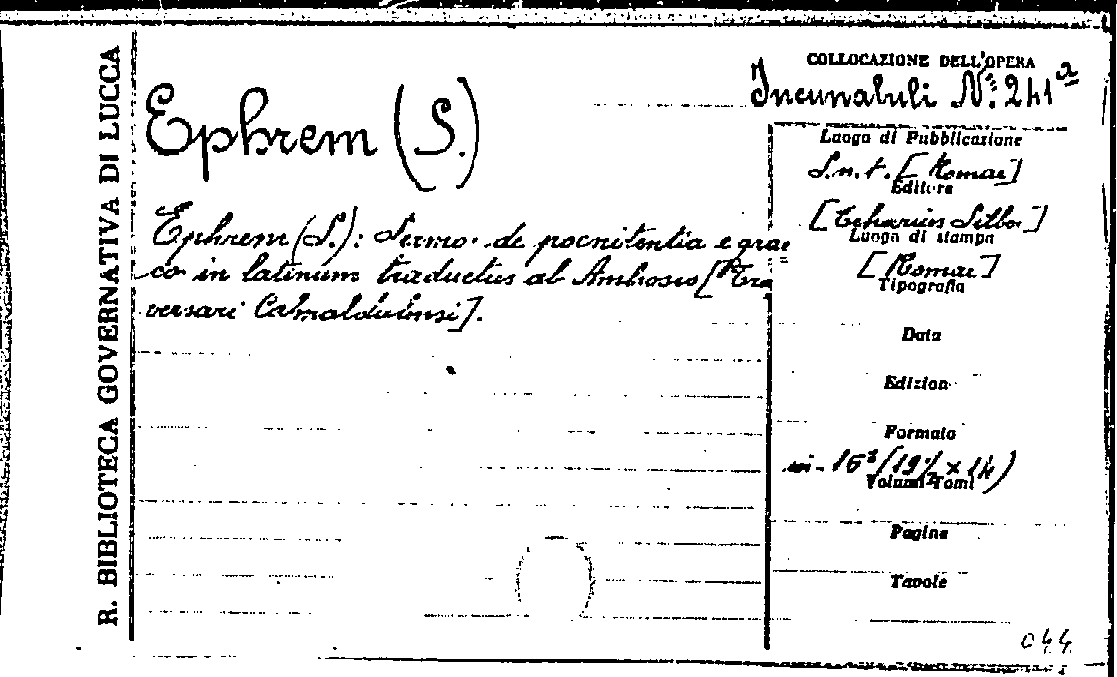 R. BIBLIOTECA GOVERNATIVA DI LUCCA
COLLOCAZIONE DELL'OPERA
Incunabuli N.º 241ª
Ephrem (S.)
Ephrem (S.): Sermo de poenitentia e grae
co in latinum traductus ab Ambrosio [Tra=
versari Camaldulensi].
Luogo di Pubblicazione
S.n.t. [Romae]
Editore
[Eucharius Silber]
Luogo di stampa
[Romae]
Tipografia
Data
Edizione
Formato
in-16º (19½ x 14)
Volumi Tomi
Pagine
Tavole
044